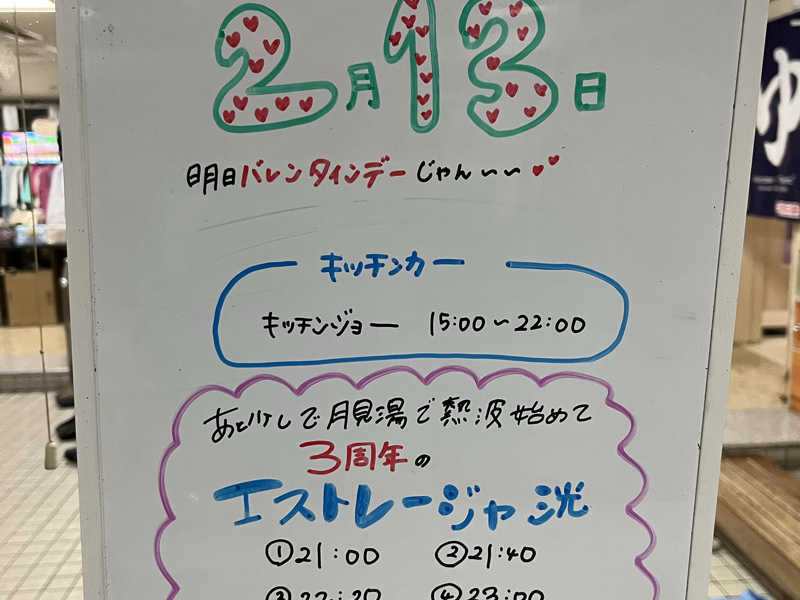 2月13日
明日バレンタインデーじゃんぃぃ
キッチンカー
キッチンジョー 15:00~22:00
あと少しで月見湯で熱波始めて
3周年の
エストレージャ洸
①21:00 ②21:40
③22:20 ④23:00
ゆ